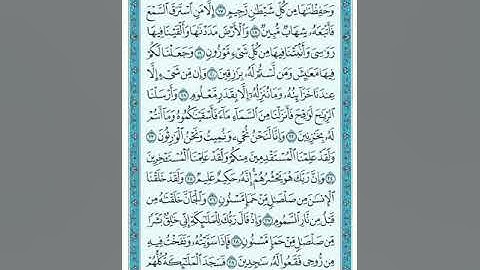 وَحَفِظْنَٰهَا مِن كُلِّ شَيْطَٰنٍ رَّجِيمٍ ١٧ إِلَّا مَنِ ٱسْتَرَقَ ٱلسَّمْعَ
فَأَتْبَعَهُۥ شِهَابٌ مُّبِينٌ ١٨ وَٱلْأَرْضَ مَدَدْنَٰهَا وَأَلْقَيْنَا فِيهَا
رَوَٰسِىَ وَأَنۢبَتْنَا فِيهَا مِن كُلِّ شَىْءٍ مَّوْزُونٍ ١٩ وَجَعَلْنَا لَكُمْ
فِيهَا مَعَٰيِشَ وَمَن لَّسْتُمْ لَهُۥ بِرَٰزِقِينَ ٢٠ وَإِن مِّن شَىْءٍ إِلَّا
عِندَنَا خَزَآئِنُهُۥ وَمَا نُنَزِّلُهُۥٓ إِلَّا بِقَدَرٍ مَّعْلُومٍ ٢١ وَأَرْسَلْنَا
ٱلرِّيَٰحَ لَوَٰقِحَ فَأَنزَلْنَا مِنَ ٱلسَّمَآءِ مَآءً فَأَسْقَيْنَٰكُمُوهُ وَمَآ أَنتُمْ
لَهُۥ بِخَٰزِنِينَ ٢٢ وَإِنَّا لَنَحْنُ نُحْىِۦ وَنُمِيتُ وَنَحْنُ ٱلْوَٰرِثُونَ ٢٣
وَلَقَدْ عَلِمْنَا ٱلْمُسْتَقْدِمِينَ مِنكُمْ وَلَقَدْ عَلِمْنَا ٱلْمُسْتَـْٔخِرِينَ
٢٤ وَإِنَّ رَبَّكَ هُوَ يَحْشُرُهُمْ إِنَّهُۥ حَكِيمٌ عَلِيمٌ ٢٥ وَلَقَدْ خَلَقْنَا
ٱلْإِنسَٰنَ مِن صَلْصَٰلٍ مِّنْ حَمَإٍ مَّسْنُونٍ ٢٦ وَٱلْجَآنَّ خَلَقْنَٰهُ مِن
قَبْلُ مِن نَّارِ ٱلسَّمُومِ ٢٧ وَإِذْ قَالَ رَبُّكَ لِلْمَلَٰٓئِكَةِ إِنِّى خَٰلِقٌۢ بَشَرًا
مِّن صَلْصَٰلٍ مِّنْ حَمَإٍ مَّسْنُونٍ ٢٨ فَإِذَا سَوَّيْتُهُۥ وَنَفَخْتُ فِيهِ
مِن رُّوحِى فَقَعُوا۟ لَهُۥ سَٰجِدِينَ ٢٩ فَسَجَدَ ٱلْمَلَٰٓئِكَةُ كُلُّهُمْ